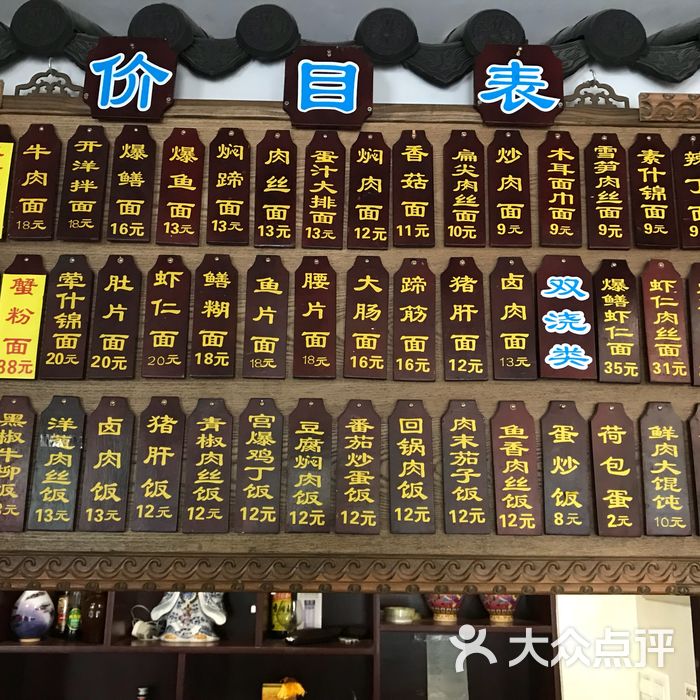 价目表
牛肉面 18元
开洋拌面 18元
爆鳝面 16元
爆鱼面 13元
焖蹄面 13元
肉丝面 13元
蛋汁大排面 13元
焖肉面 12元
香菇面 11元
扁尖肉丝面 10元
炒肉面 9元
木耳面巾面 9元
雪笋肉丝面 9元
素什锦面 9元
辣
蟹粉面 38元
荤什锦面 20元
肚片面 20元
虾仁面 20元
鳝糊面 18元
鱼片面 18元
腰片面 18元
大肠面 16元
蹄筋面 16元
猪肝面 12元
卤肉面 13元
双浇类
爆鳝虾仁面 35元
虾仁肉丝面 31元
黑椒牛柳饭
洋葱肉丝饭 13元
卤肉饭 13元
猪肝饭 12元
青椒肉丝饭 12元
宫爆鸡丁饭 12元
豆腐焖肉饭 12元
番茄炒蛋饭 12元
回锅肉饭 12元
肉末茄子饭 12元
鱼香肉丝饭 12元
蛋炒饭 8元
荷包蛋 2元
鲜肉大馄饨 10元
大众点评